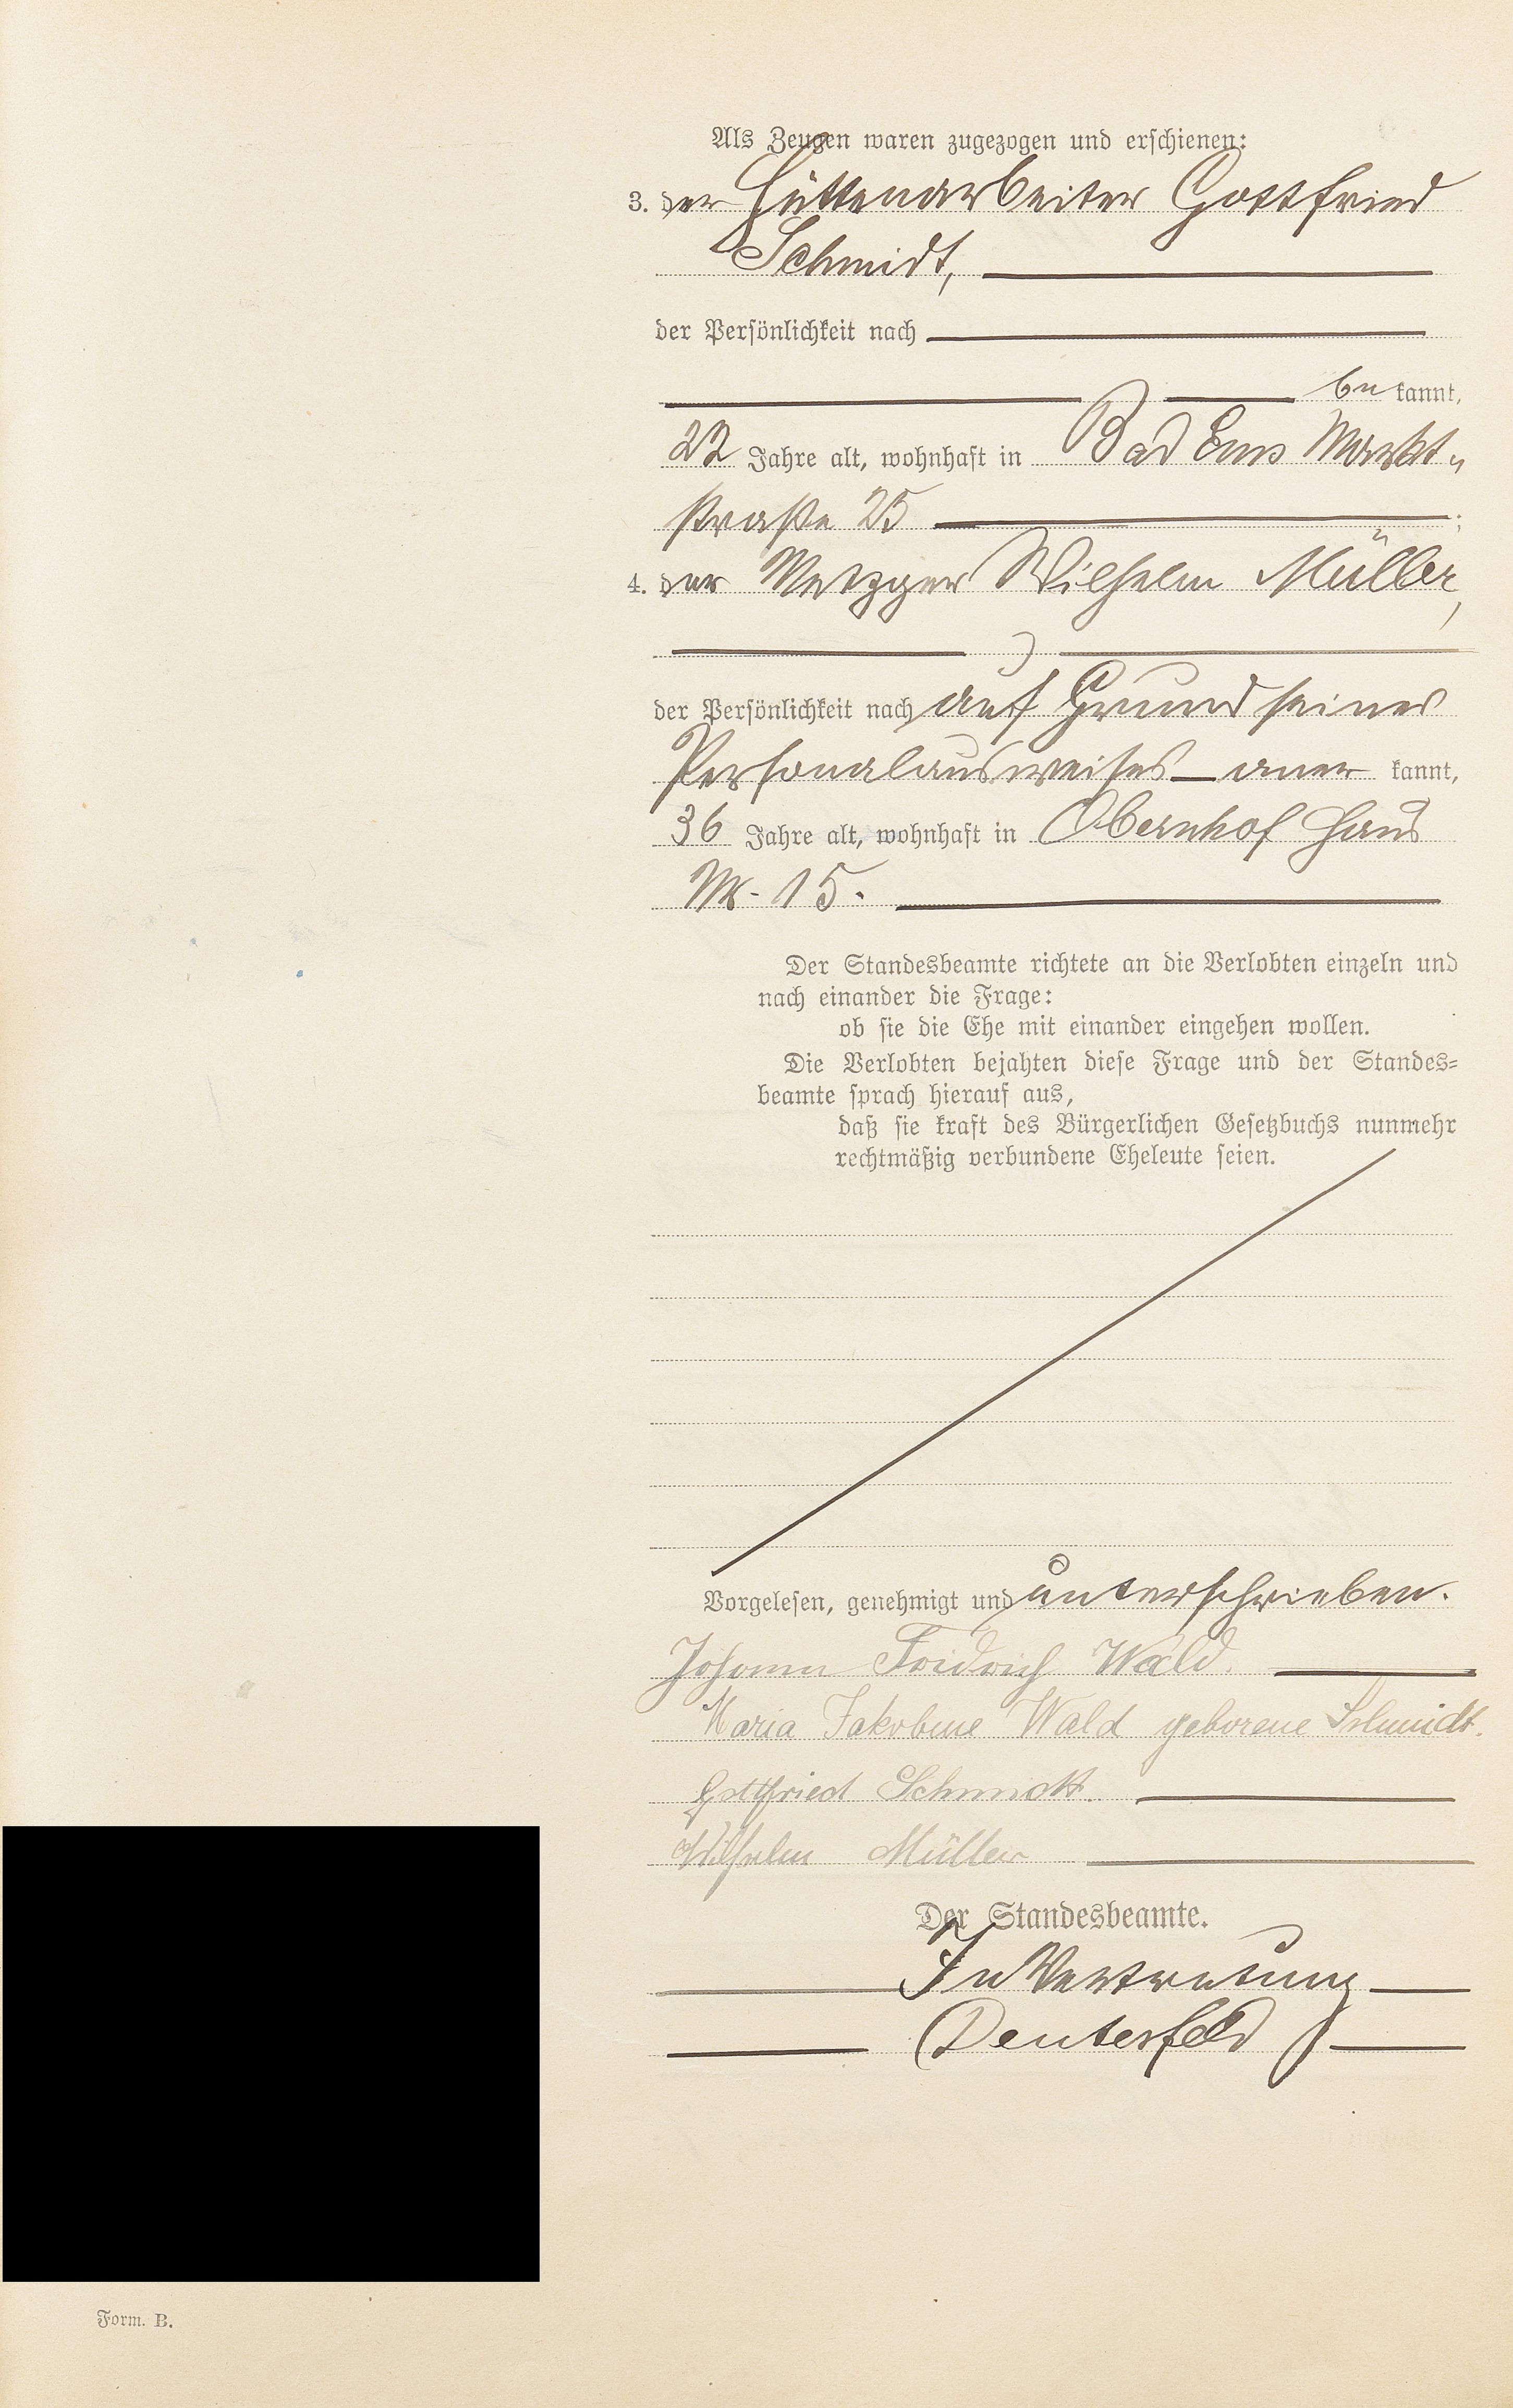 Als Zeugen waren zugezogen und erschienen:
3. der Hüttenarbeiter Gottfried
Schmidt,
der Persönlichkeit nach
be kannt,
22 Jahre alt, wohnhaft in Bad Ems Markt-
straße 25 ;
4. der Metzger Wilhelm Müller,
der Persönlichkeit nach auf Grund seines
Personalausweises aner kannt,
36 Jahre alt, wohnhaft in Obernhof Haus
Nr. 15.
Der Standesbeamte richtete an die Verlobten einzeln und
nach einander die Frage:
ob sie die Ehe mit einander eingehen wollen.
Die Verlobten bejahten diese Frage und der Standes=
beamte sprach hierauf aus,
daß sie kraft des Bürgerlichen Gesetzbuchs nunmehr
rechtmäßig verbundene Eheleute seien.
Vorgelesen, genehmigt und unterschrieben.
Johann Fridrich Wald.
Maria Jakobine Wald geborene Schmidt.
Gottfried Schmidt.
Wilhelm Müller
Der Standesbeamte.
In Vertretung
Form. B.